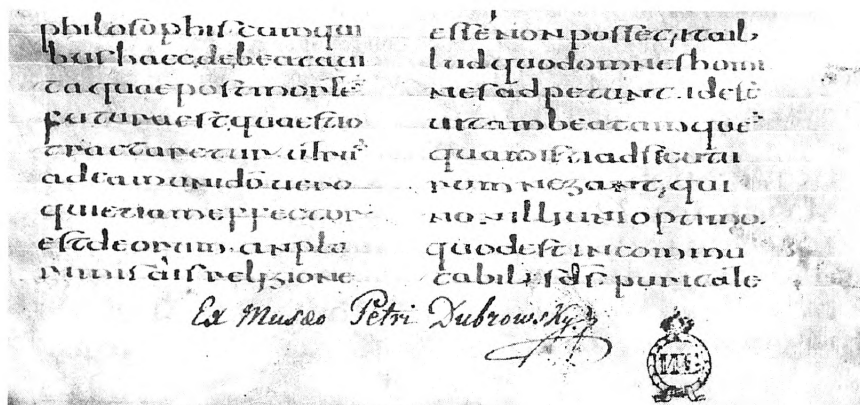 philosophis cum qui
bus haec de beata ui
ta quae post mortē
futura est quaestio
tractaretur utrū
ad eam uni dō uero
qui etiam effector
est deorum an plu
rimis diis religione
esse non posset, ita il
lud quod omnes homi
nes adpetunt. id est
uitam beatam quē
quam isti adsecutu
rum negant, qui
non illi uni optimo.
quod est incommu
tabilis ds puritate
Ex Musæo Petri Dubrowsky